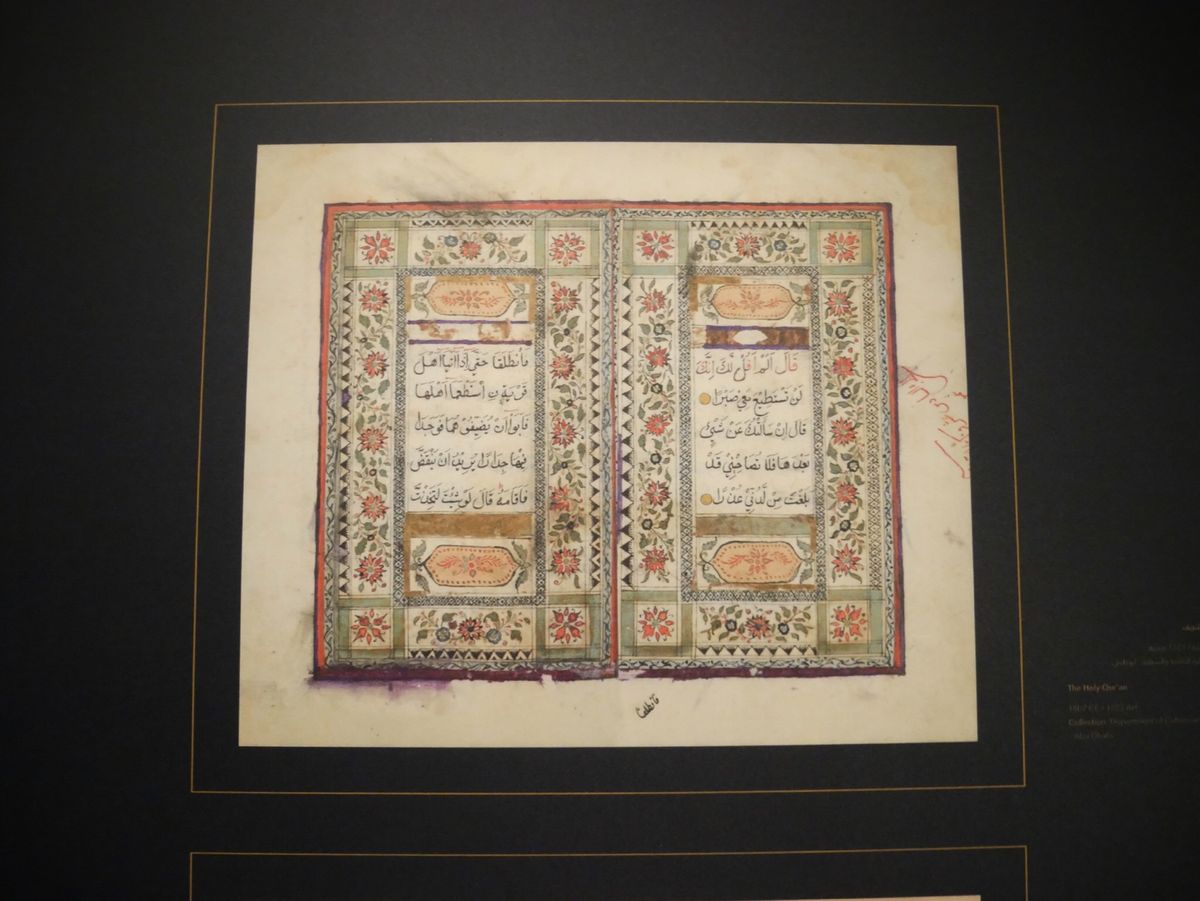 قَالَ أَلَمْ أَقُلْ لَكَ إِنَّكَ
لَنْ تَسْتَطِيعَ مَعِيَ صَبْرًا
قَالَ إِنْ سَأَلْتُكَ عَنْ شَيْءٍ
بَعْدَهَا فَلَا تُصَاحِبْنِي قَدْ
بَلَغْتَ مِنْ لَدُنِّي عُذْرًا
فَانْطَلَقَا حَتَّى إِذَا أَتَيَا أَهْلَ
قَرْيَةٍ اسْتَطْعَمَا أَهْلَهَا
فَأَبَوْا أَنْ يُضَيِّفُوهُمَا فَوَجَدَا
فِيهَا جِدَارًا يُرِيدُ أَنْ يَنْقَضَّ
فَأَقَامَهُ قَالَ لَوْ شِئْتَ لَتَّخَذْتَ
فانطلقا
The Holy Qur'an
Collection: Department of
Abu Dhabi